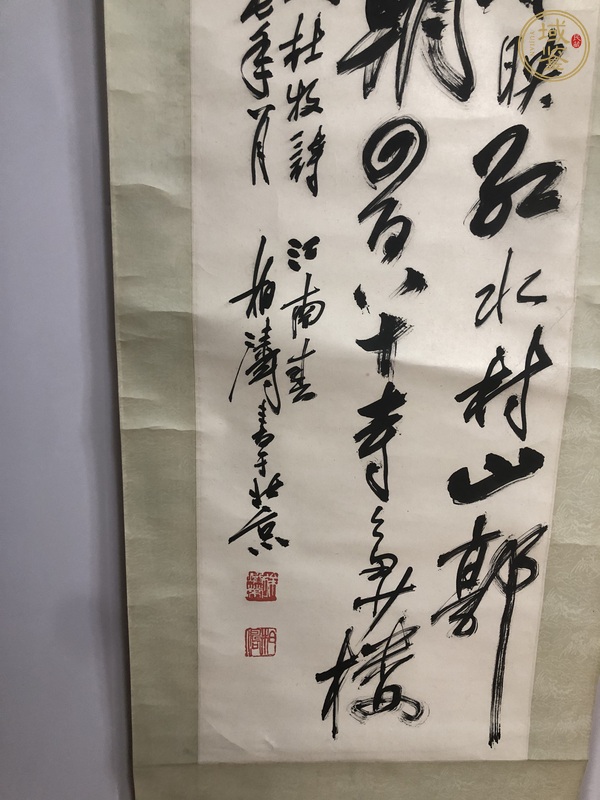 映红水村山郭
朝四百八十寺多少楼
杜牧詩 江南春
七年八月 柏濤書于北京
域鑒